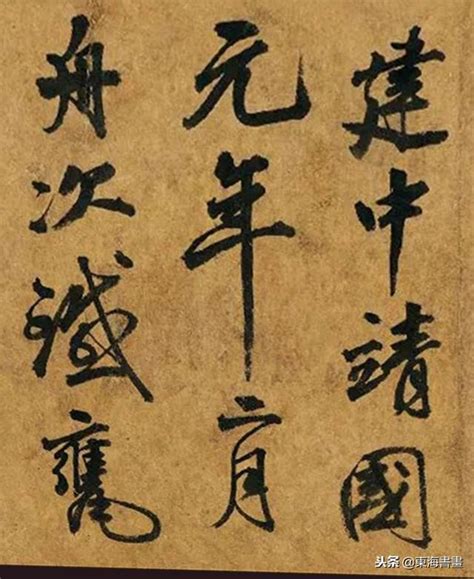 建中靖國
元年二月
舟次鐵甕
头条 @東海書畫